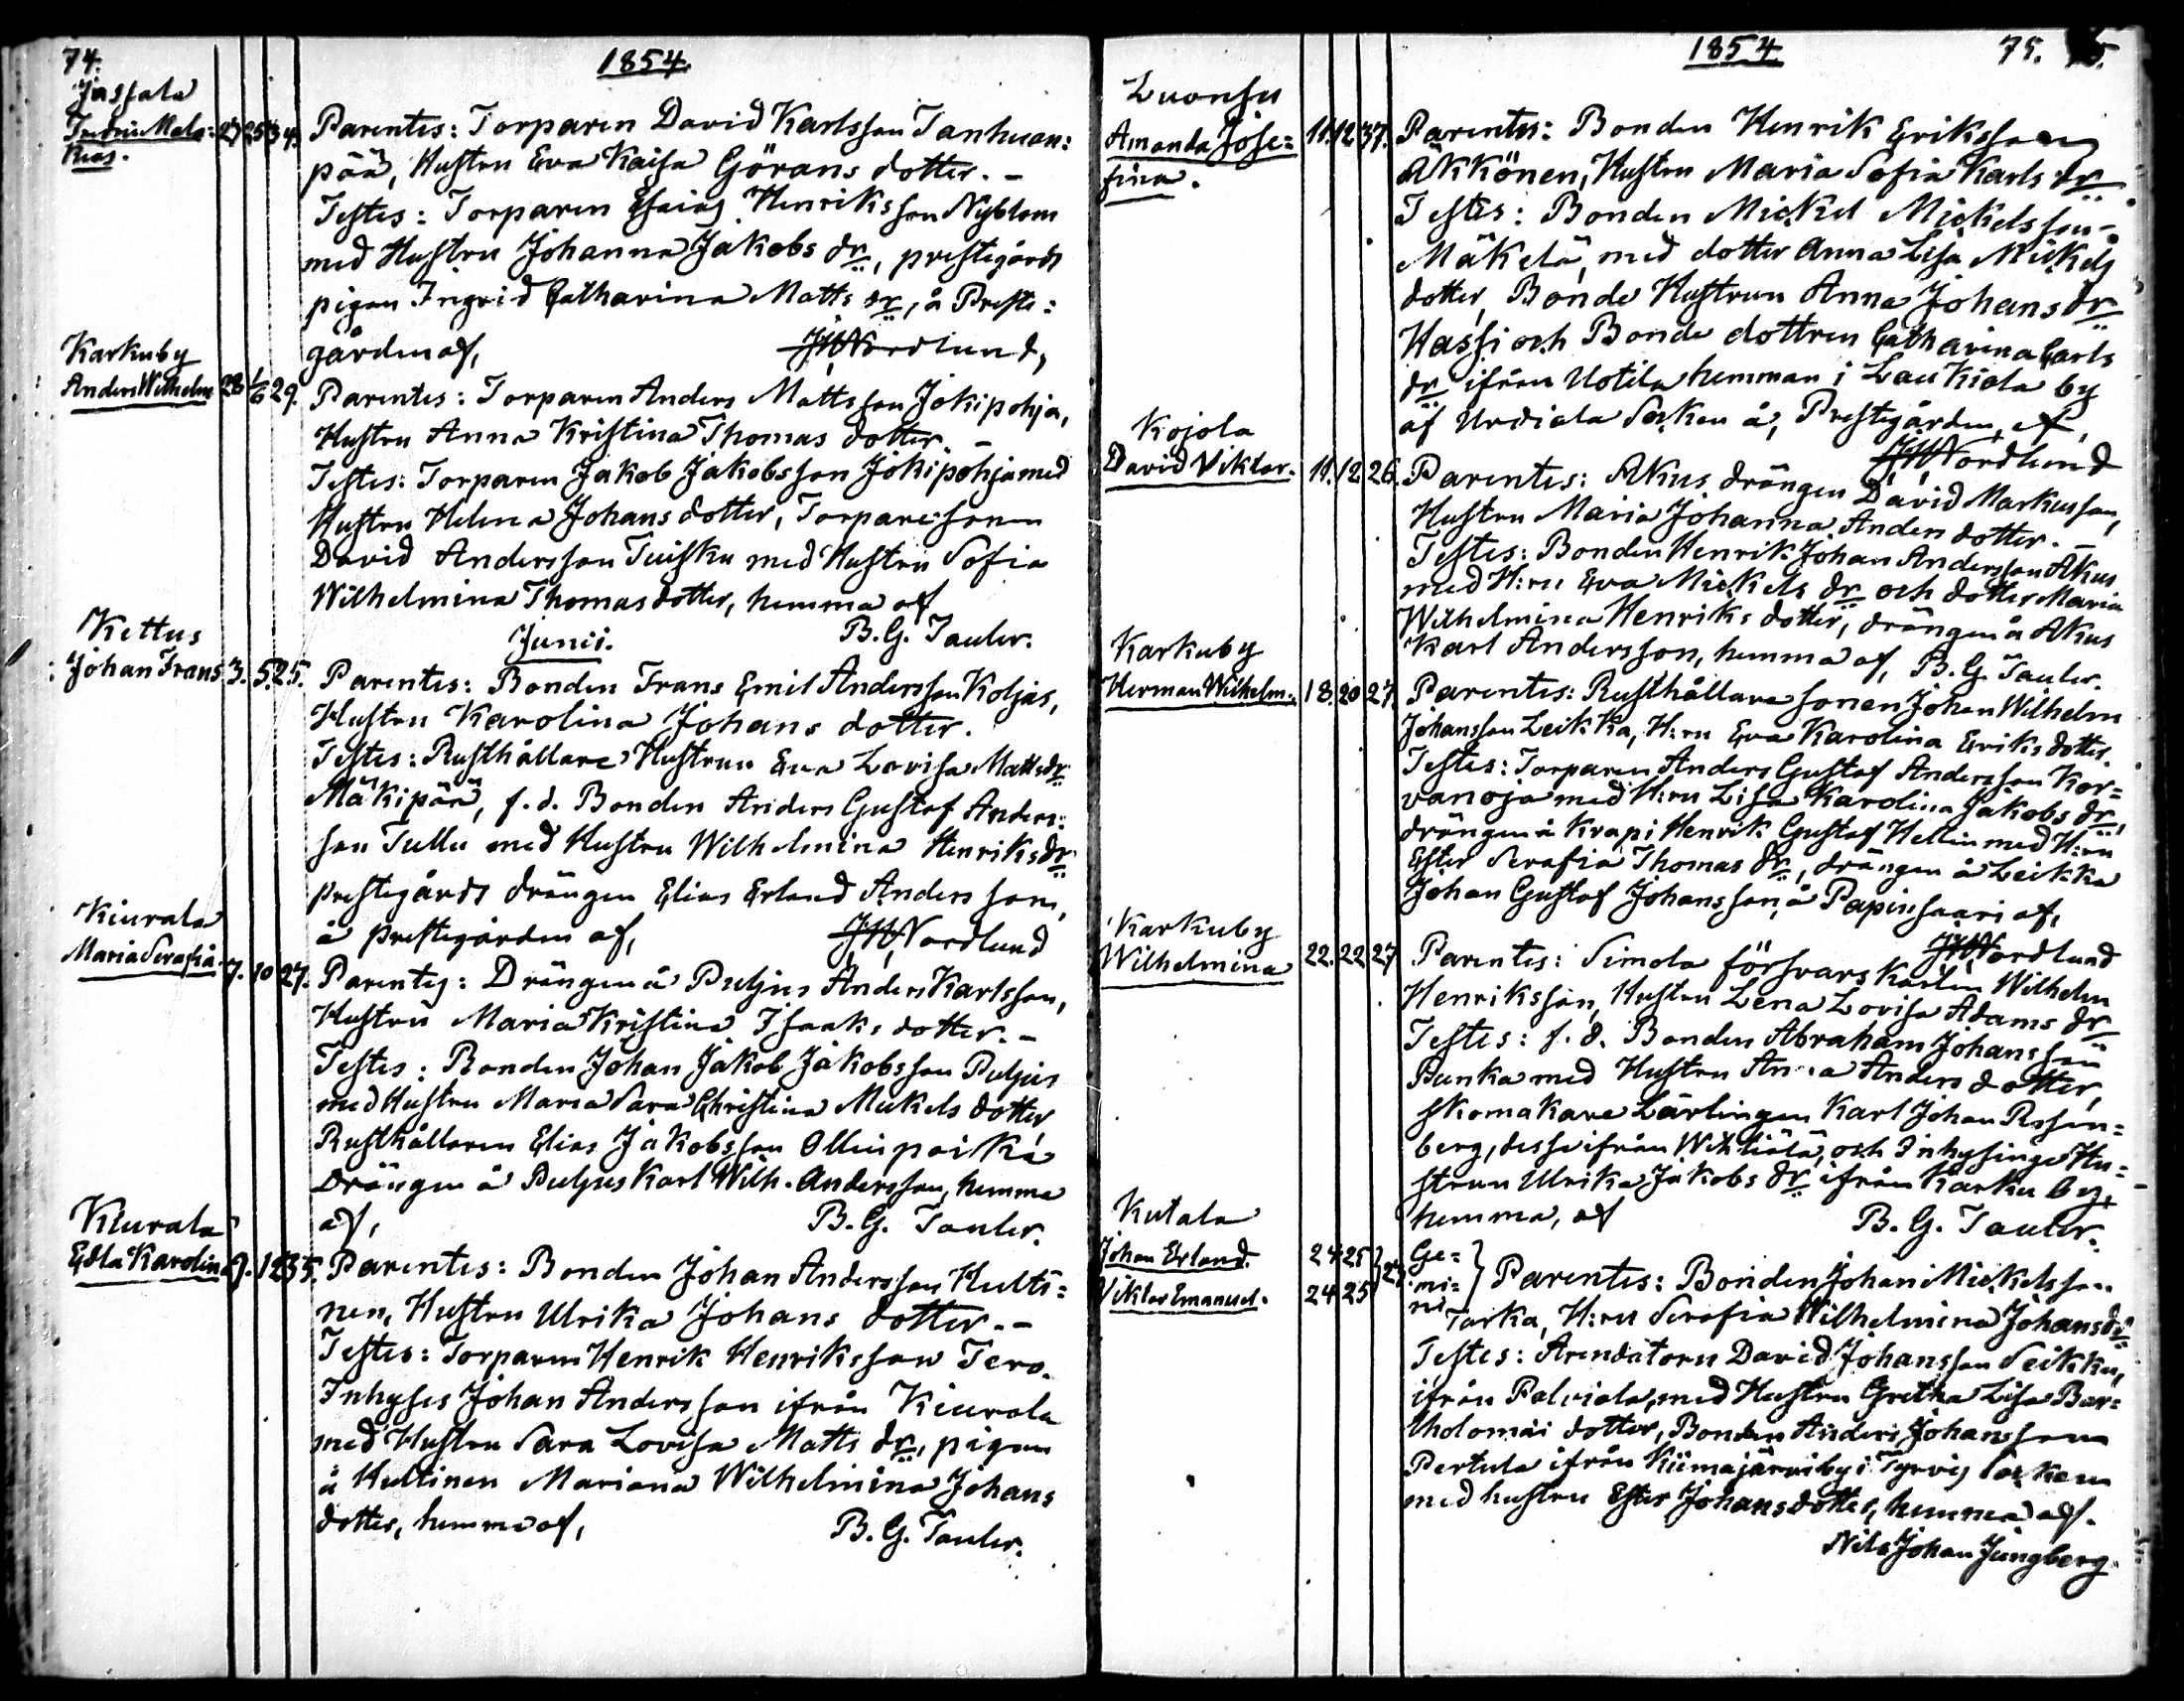 74.
1854.
Jassala
Fredric Mala=
kias.
27 25 34.
Parentes: Torparen David Karlsson Tanhuan=
pää, Hustru Eva Kaisa Görans dotter. -
Testes: Torparen Esaias Henriksson Nyblom
med Hustru Johanna Jakobs dr, prestegårds
pigan Ingrid Catharina Matts dr, å Preste=
gården af, JWNordlund,
Karkuby
Anders Wilhelm 28 1/6 29.
Parentes: Torparen Anders Mattsson Jokipohja,
Hustru Anna Kristina Thomas dotter. -
Testes: Torparen Jakob Jakobsson Jokipohja med
Hustru Helena Johans dotter, Torpare sonen
David Andersson Tuisku med Hustru Sofia
Wilhelmina Thomas dotter, hemma af
B. G. Tauler.
Junii.
Kettus
Johan Frans 3. 5. 25.
Parentes: Bonden Frans Emil Andersson Koljas,
Hustru Karolina Johans dotter.
Testes: Rusthållare Hustrun Eva Lovisa Matts dr
Mäkipää, f. d. Bonden Anders Gustaf Anders=
son Tullu med Hustru Wilhelmina Henriks dr
prestegårds drängen Elias Erland Andersson,
å prestegården af, JWNordlund
Kiurala
Maria Serafia. 7. 10 27.
Parentes: Drängen å Puljus Anders Karlsson,
Hustru Maria Kristina Isaaks dotter. -
Testes: Bonden Johan Jakob Jakobsson Puljus
med Hustru Maria Sara Christina Mickels dotter
Rusthållaren Elias Jakobsson Ollinpoika
Drängen å Puljus Karl Wilh. Andersson, hemma
af, B. G. Tauler.
Kiurala
Edla Karolina 9. 12 35.
Parentes: Bonden Johan Andersson Hulti=
nen, Hustru Ulrika Johans dotter. -
Testes: Torparen Henrik Henriksson Tero.
Inhyses Johan Andersson ifrån Kiurala
med Hustru Sara Lovisa Matts dr, pigan
å Hultinen Mariana Wilhelmina Johans
dotter, hemma af, B. G. Tauler.
1854. 75.
Luonsu
Amanda Jose=
fina.
11. 12 37.
Parentes: Bonden Henrik Eriksson
Äkkönen, Hustru Maria Sofia Karls dr
Testes: Bonden Mickel Mickelsson
Mäkelä, med dotter Anna Lisa Mickels
dotter, Bonde Hustrun Anna Johans dr
Hassi och Bonde dottren Catharina Carls
dr ifrån Uotila hemman i Laukiala by
af Urdiala Socken å, Prestegården, af,
JWNordlund
Kojola
David Viktor. 11. 12. 26.
Parentes: Akus drängen David Markusson,
Hustru Maria Johanna Anders dotter. -
Testes: Bonden Henrik Johan Andersson Akus
med H:ru Eva Mickels dr och dotter Maria
Wilhelmina Henriks dotter, drängen å Akus
Karl Andersson, hemma af, B. G. Tauler.
Karkuby
Herman Wilhelm. 18. 20 27.
Parentes: Rusthållare sonen Johan Wilhelm
Johansson Leikka, H:ru Eva Karolina Eriks dotter.
Testes: Torparen Anders Gustaf Andersson Kor=
vanoja med H:ru Lisa Karolina Jakobs dr,
drängen å Krapi Henrik Gustaf Hellin med H:ru
Ester Serafia Thomas dr, drängen å Leikka
Johan Gustaf Johansson, å Papinsaari af,
JWNordlund
Karkuby
Wilhelmina 22. 22 27
Parentes: Simola försvars karlen Wilhelm
Henriksson, Hustru Lena Lovisa Adams dr
Testes: f. d. Bonden Abraham Johansson
Bunka med Hustru Anna Anders dotter,
skomakare Lärlingen Karl Johan Rosen=
berg, desse ifrån Wihtiälä, och Inhysinge Hu=
strun Ulrika Jakobs dr ifrån Karku by,
hemma, af B. G. Tauler.
Kutala
Johan Erland. 24 25
Viktor Emanuel. 24 25
Ge=
mi=
ni
Parentes: Bonden Johan Mickelsson
Tarka, H:ru Serafia Wilhelmina Johans dr
Testes: Arendatorn David Johansson Seikku,
ifrån Palviala, med Hustru Gretha Lisa Bar=
tholomäi dotter, Bonden Anders Johansson
Pertula ifrån Kiimajärvi by i Tyrvis Socken
med hustru Ester Johans dotter, hemma af.
Nils Johan Jungberg.